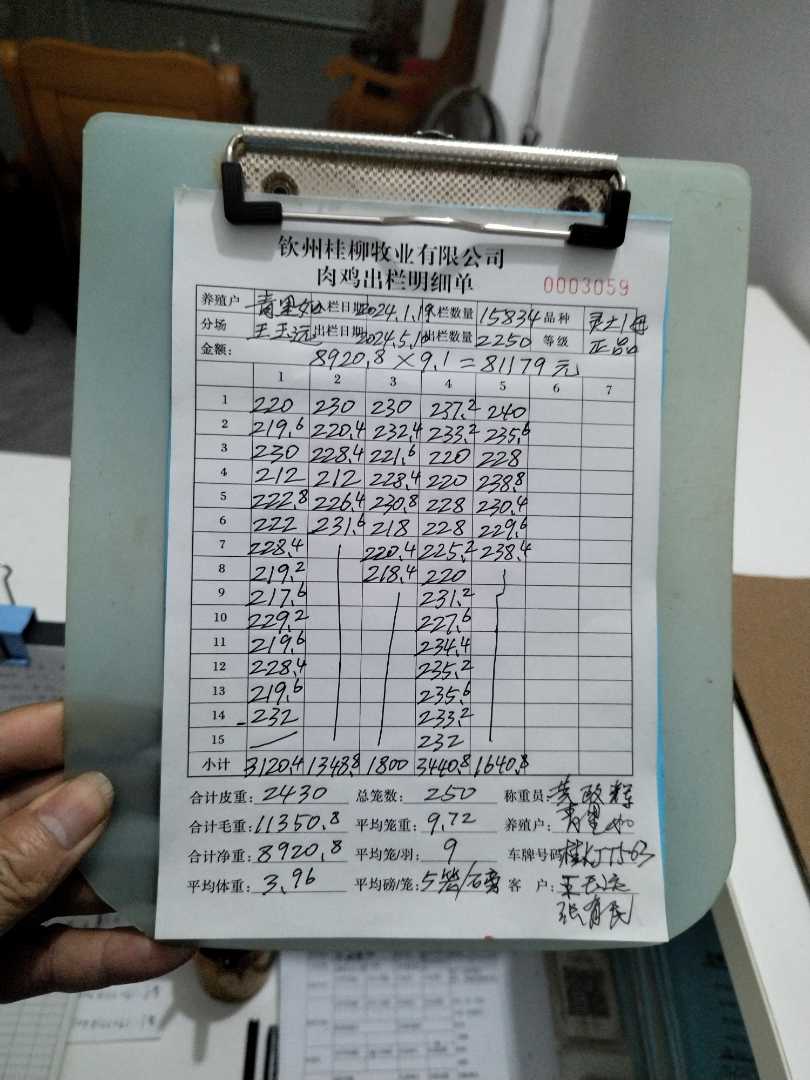 钦州桂柳牧业有限公司
肉鸡出栏明细单 0003059
养殖户 栏日期 2024.1.19 栏数量 15834 品种
分场 出栏日期 2024.5.10 出栏数量 2250 等级 正品
金额: 8920.8×9.1=81179元
1 2 3 4 5 6 7
1 220 230 230 237.2 240
2 219.6 220.4 232.4 233.2 235.6
3 230 228.4 221.6 220 228
4 212 212 228.4 220 238.8
5 222.8 226.4 230.8 228 230.4
6 222 231.6 218 228 229.6
7 228.4 220.4 225.2 238.4
8 219.2 218.4 220
9 217.6 231.2
10 229.2 227.6
11 219.6 234.4
12 228.4 235.2
13 219.6 235.6
14 232 233.2
15 232
小计 3120.4 1348.8 1800 3440.8 1640.8
合计皮重: 2430 总笼数: 250 称重员:
合计毛重: 11350.8 平均笼重: 9.72 养殖户:
合计净重: 8920.8 平均笼/羽: 9 车牌号码
平均体重: 3.96 平均磅/笼: 5 客户: